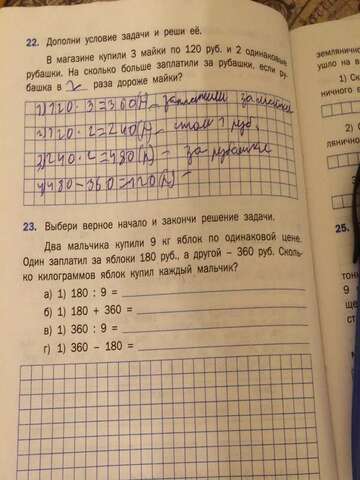 22. Дополни условие задачи и реши её.
В магазине купили 3 майки по 120 руб. и 2 одинаковые
рубашки. На сколько больше заплатили за рубашки, если ру-
башка в 2 раза дороже майки?
1) 120 · 3 = 360 (р) заплатили за майки
2) 120 · 2 = 240 (р) - стоит 1 руб.
3) 240 · 2 = 480 (р) - за рубашки
4) 480 - 360 = 120 (р) -
23. Выбери верное начало и закончи решение задачи.
Два мальчика купили 9 кг яблок по одинаковой цене.
Один заплатил за яблоки 180 руб., а другой – 360 руб. Сколь-
ко килограммов яблок купил каждый мальчик?
а) 1) 180 : 9 =
б) 1) 180 + 360 =
в) 1) 360 : 9 =
г) 1) 360 – 180 =
землянично
ушло на в
1)
ничного в
2)
лянично
25.
9